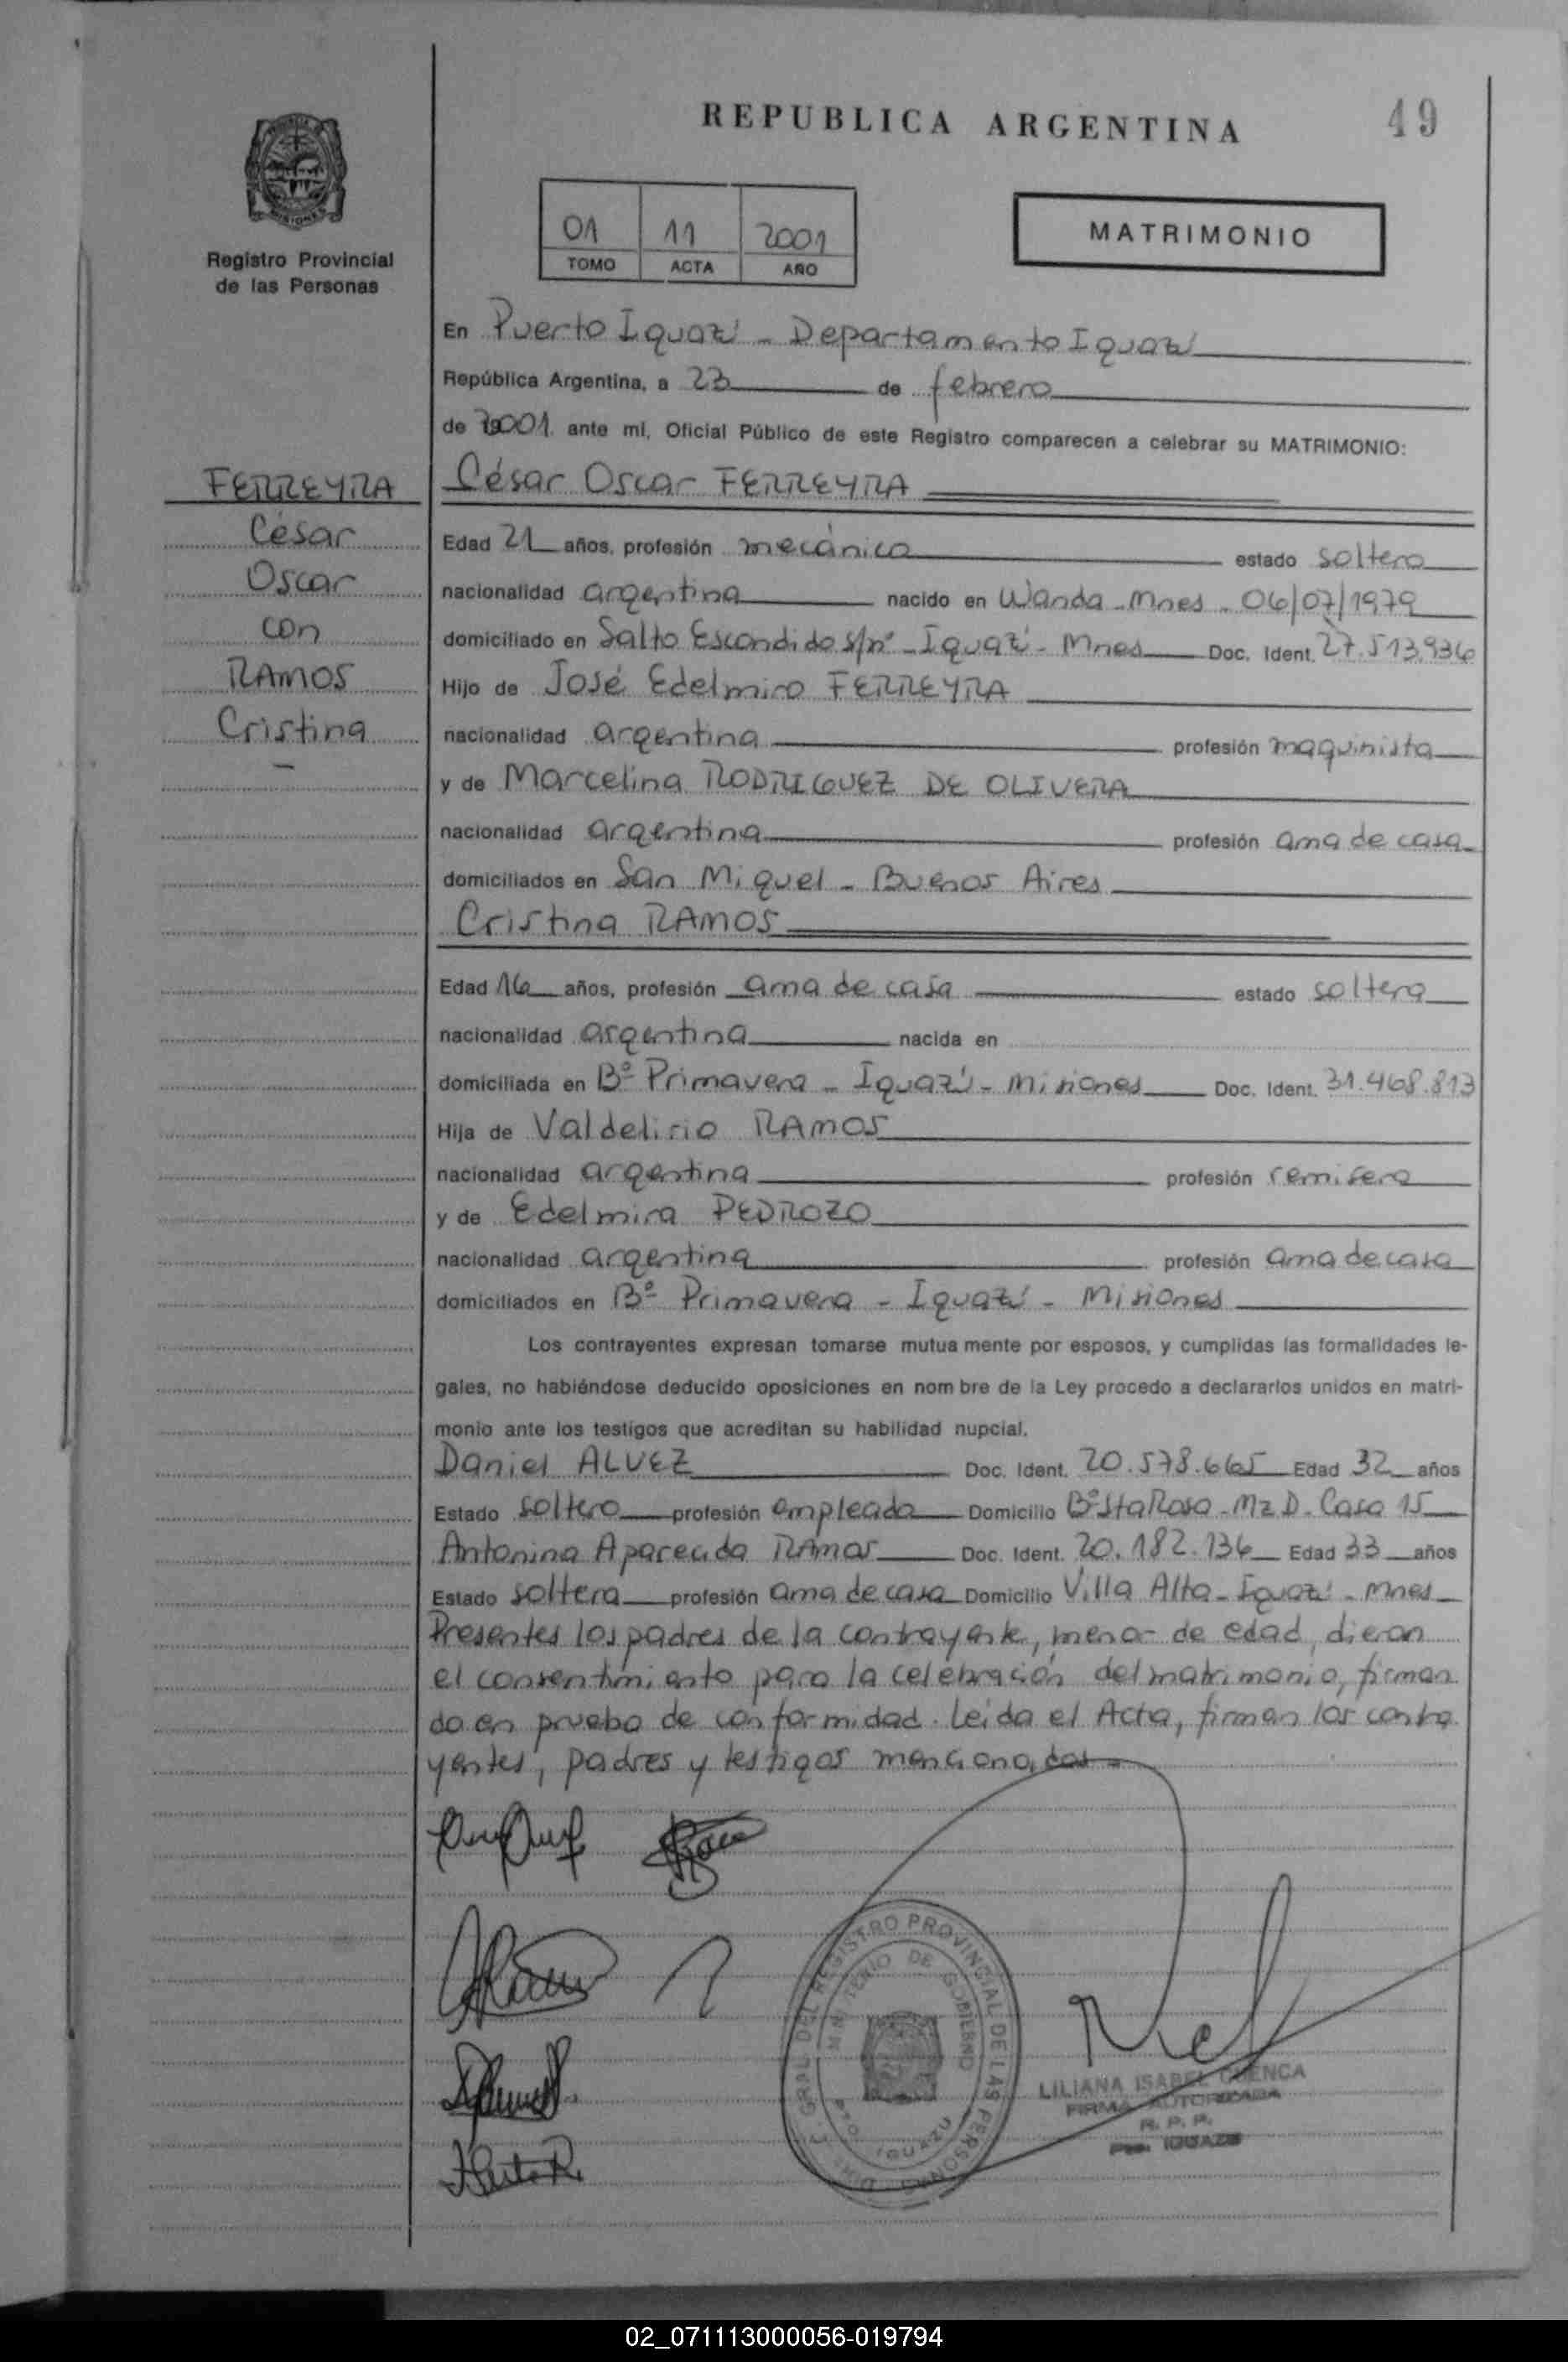 REPUBLICA ARGENTINA
49
Registro Provincial
de las Personas
01 11 2001
TOMO ACTA AÑO
MATRIMONIO
En Puerto Iguazú - Departamento Iguazú
República Argentina, a 23 de febrero
de 2001 ante mí, Oficial Público de este Registro comparecen a celebrar su MATRIMONIO:
FERREYRA
César
Oscar
con
RAMOS
Cristina
César Oscar FERREYRA
Edad 21 años, profesión mecánico estado soltero
nacionalidad argentina nacido en Wanda - Mnes - 06/07/1979
domiciliado en Salto Escondido s/nº - Iguazú - Mnes Doc. Ident. 27.513.936
Hijo de José Edelmiro FERREYRA
nacionalidad argentina profesión maquinista
y de Marcelina RODRIGUEZ DE OLIVERA
nacionalidad argentina profesión ama de casa
domiciliados en San Miguel - Buenos Aires
Cristina RAMOS
Edad 16 años, profesión ama de casa estado soltera
nacionalidad argentina nacida en
domiciliada en Bº Primavera - Iguazú - Misiones Doc. Ident. 31.468.813
Hija de Valdelirio RAMOS
nacionalidad argentina profesión remisero
y de Edelmira PEDROZO
nacionalidad argentina profesión ama de casa
domiciliados en Bº Primavera - Iguazú - Misiones
Los contrayentes expresan tomarse mutua mente por esposos, y cumplidas las formalidades le-
gales, no habiéndose deducido oposiciones en nom bre de la Ley procedo a declararlos unidos en matri-
monio ante los testigos que acreditan su habilidad nupcial.
Daniel ALVEZ Doc. Ident. 20.578.665 Edad 32 años
Estado soltero profesión empleado Domicilio Bº Sta Rosa - Mz D. Casa 15
Antonina Aparecida RAMOS Doc. Ident. 20.182.136 Edad 33 años
Estado soltera profesión ama de casa Domicilio Villa Alta - Iguazú - Mnes
Presentes los padres de la contrayente, menor de edad, dieron
el consentimiento para la celebración del matrimonio, firman
do en prueba de conformidad. Leída el Acta, firman los contra
yentes, padres y testigos mencionados -
DIR. GRAL. DEL REGISTRO PROVINCIAL DE LAS PERSONAS
MINISTERIO DE GOBIERNO
PTO. IGUAZU
LILIANA ISABEL CUENCA
FIRMA AUTORIZADA
R. P. P.
Pto. IGUAZU
02_071113000056-019794